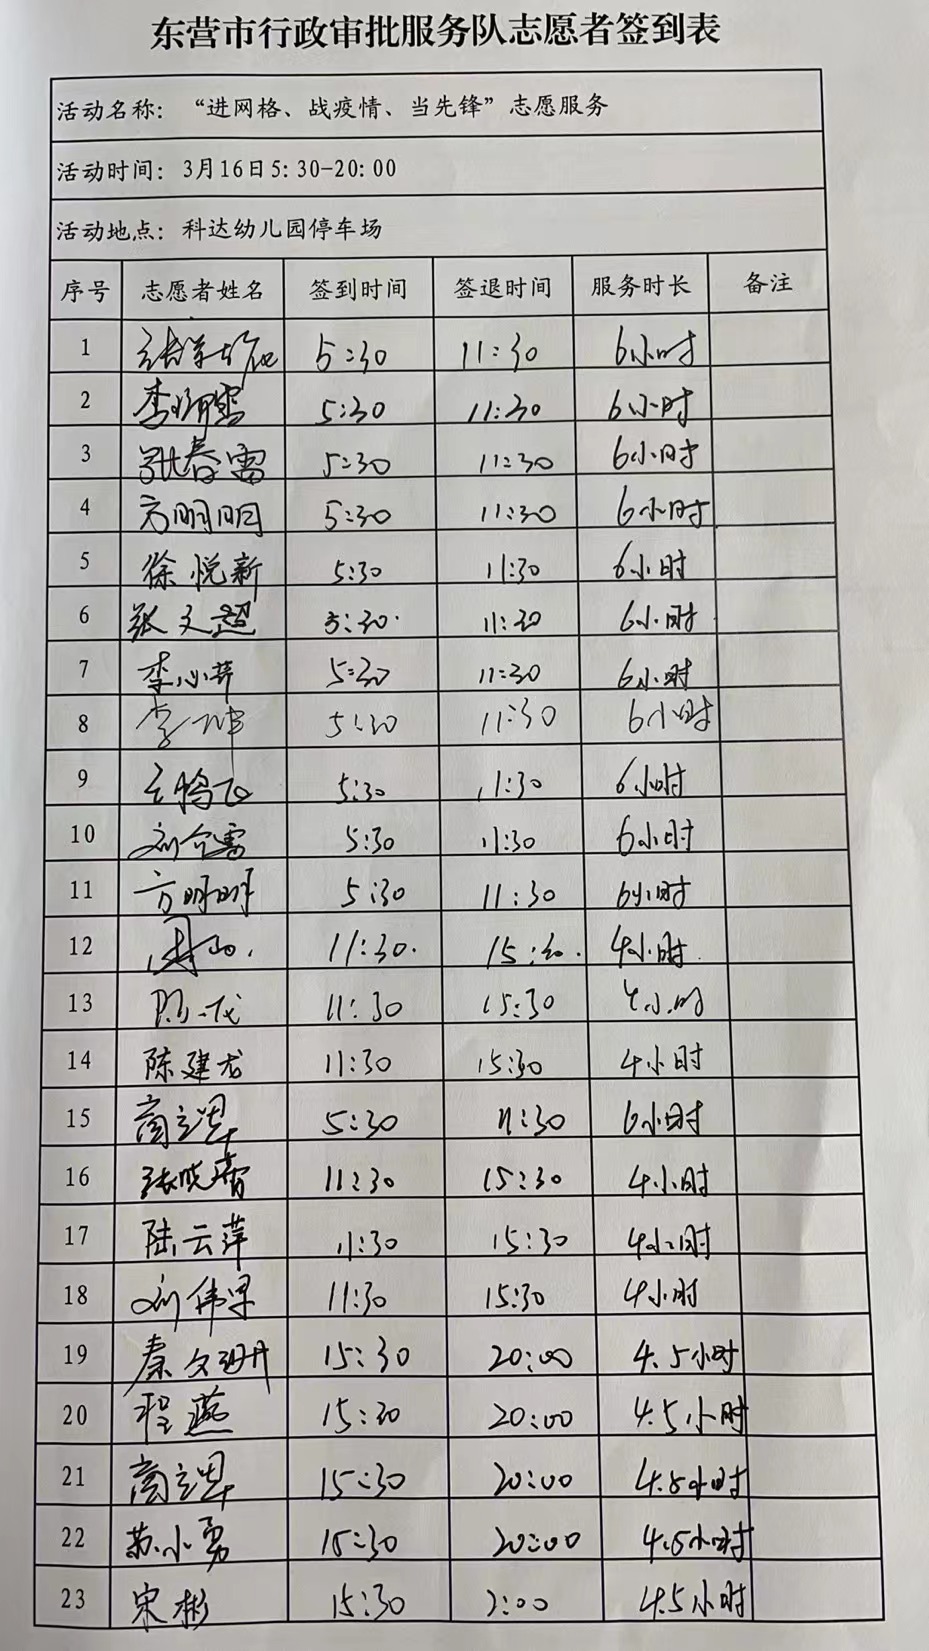 东营市行政审批服务队志愿者签到表
活动名称：“进网格、战疫情、当先锋”志愿服务
活动时间：3月16日5:30-20:00
活动地点：科达幼儿园停车场
序号 志愿者姓名 签到时间 签退时间 服务时长 备注
1 5:30 11:30 6小时
2 5:30 11:30 6小时
3 张春雷 5:30 11:30 6小时
4 方明明 5:30 11:30 6小时
5 徐悦新 5:30 11:30 6小时
6 张文超 5:30 11:30 6小时
7 李心萍 5:30 11:30 6小时
8 李坤 5:30 11:30 6小时
9 5:30 11:30 6小时
10 5:30 11:30 6小时
11 方明明 5:30 11:30 6小时
12 11:30 15:30 4小时
13 11:30 15:30 4小时
14 陈建龙 11:30 15:30 4小时
15 5:30 11:30 6小时
16 张晓蕾 11:30 15:30 4小时
17 陆云萍 11:30 15:30 4小时
18 11:30 15:30 4小时
19 秦文珊 15:30 20:00 4.5小时
20 程燕 15:30 20:00 4.5小时
21 15:30 20:00 4.5小时
22 苏小勇 15:30 20:00 4.5小时
23 宋彬 15:30 2:00 4.5小时